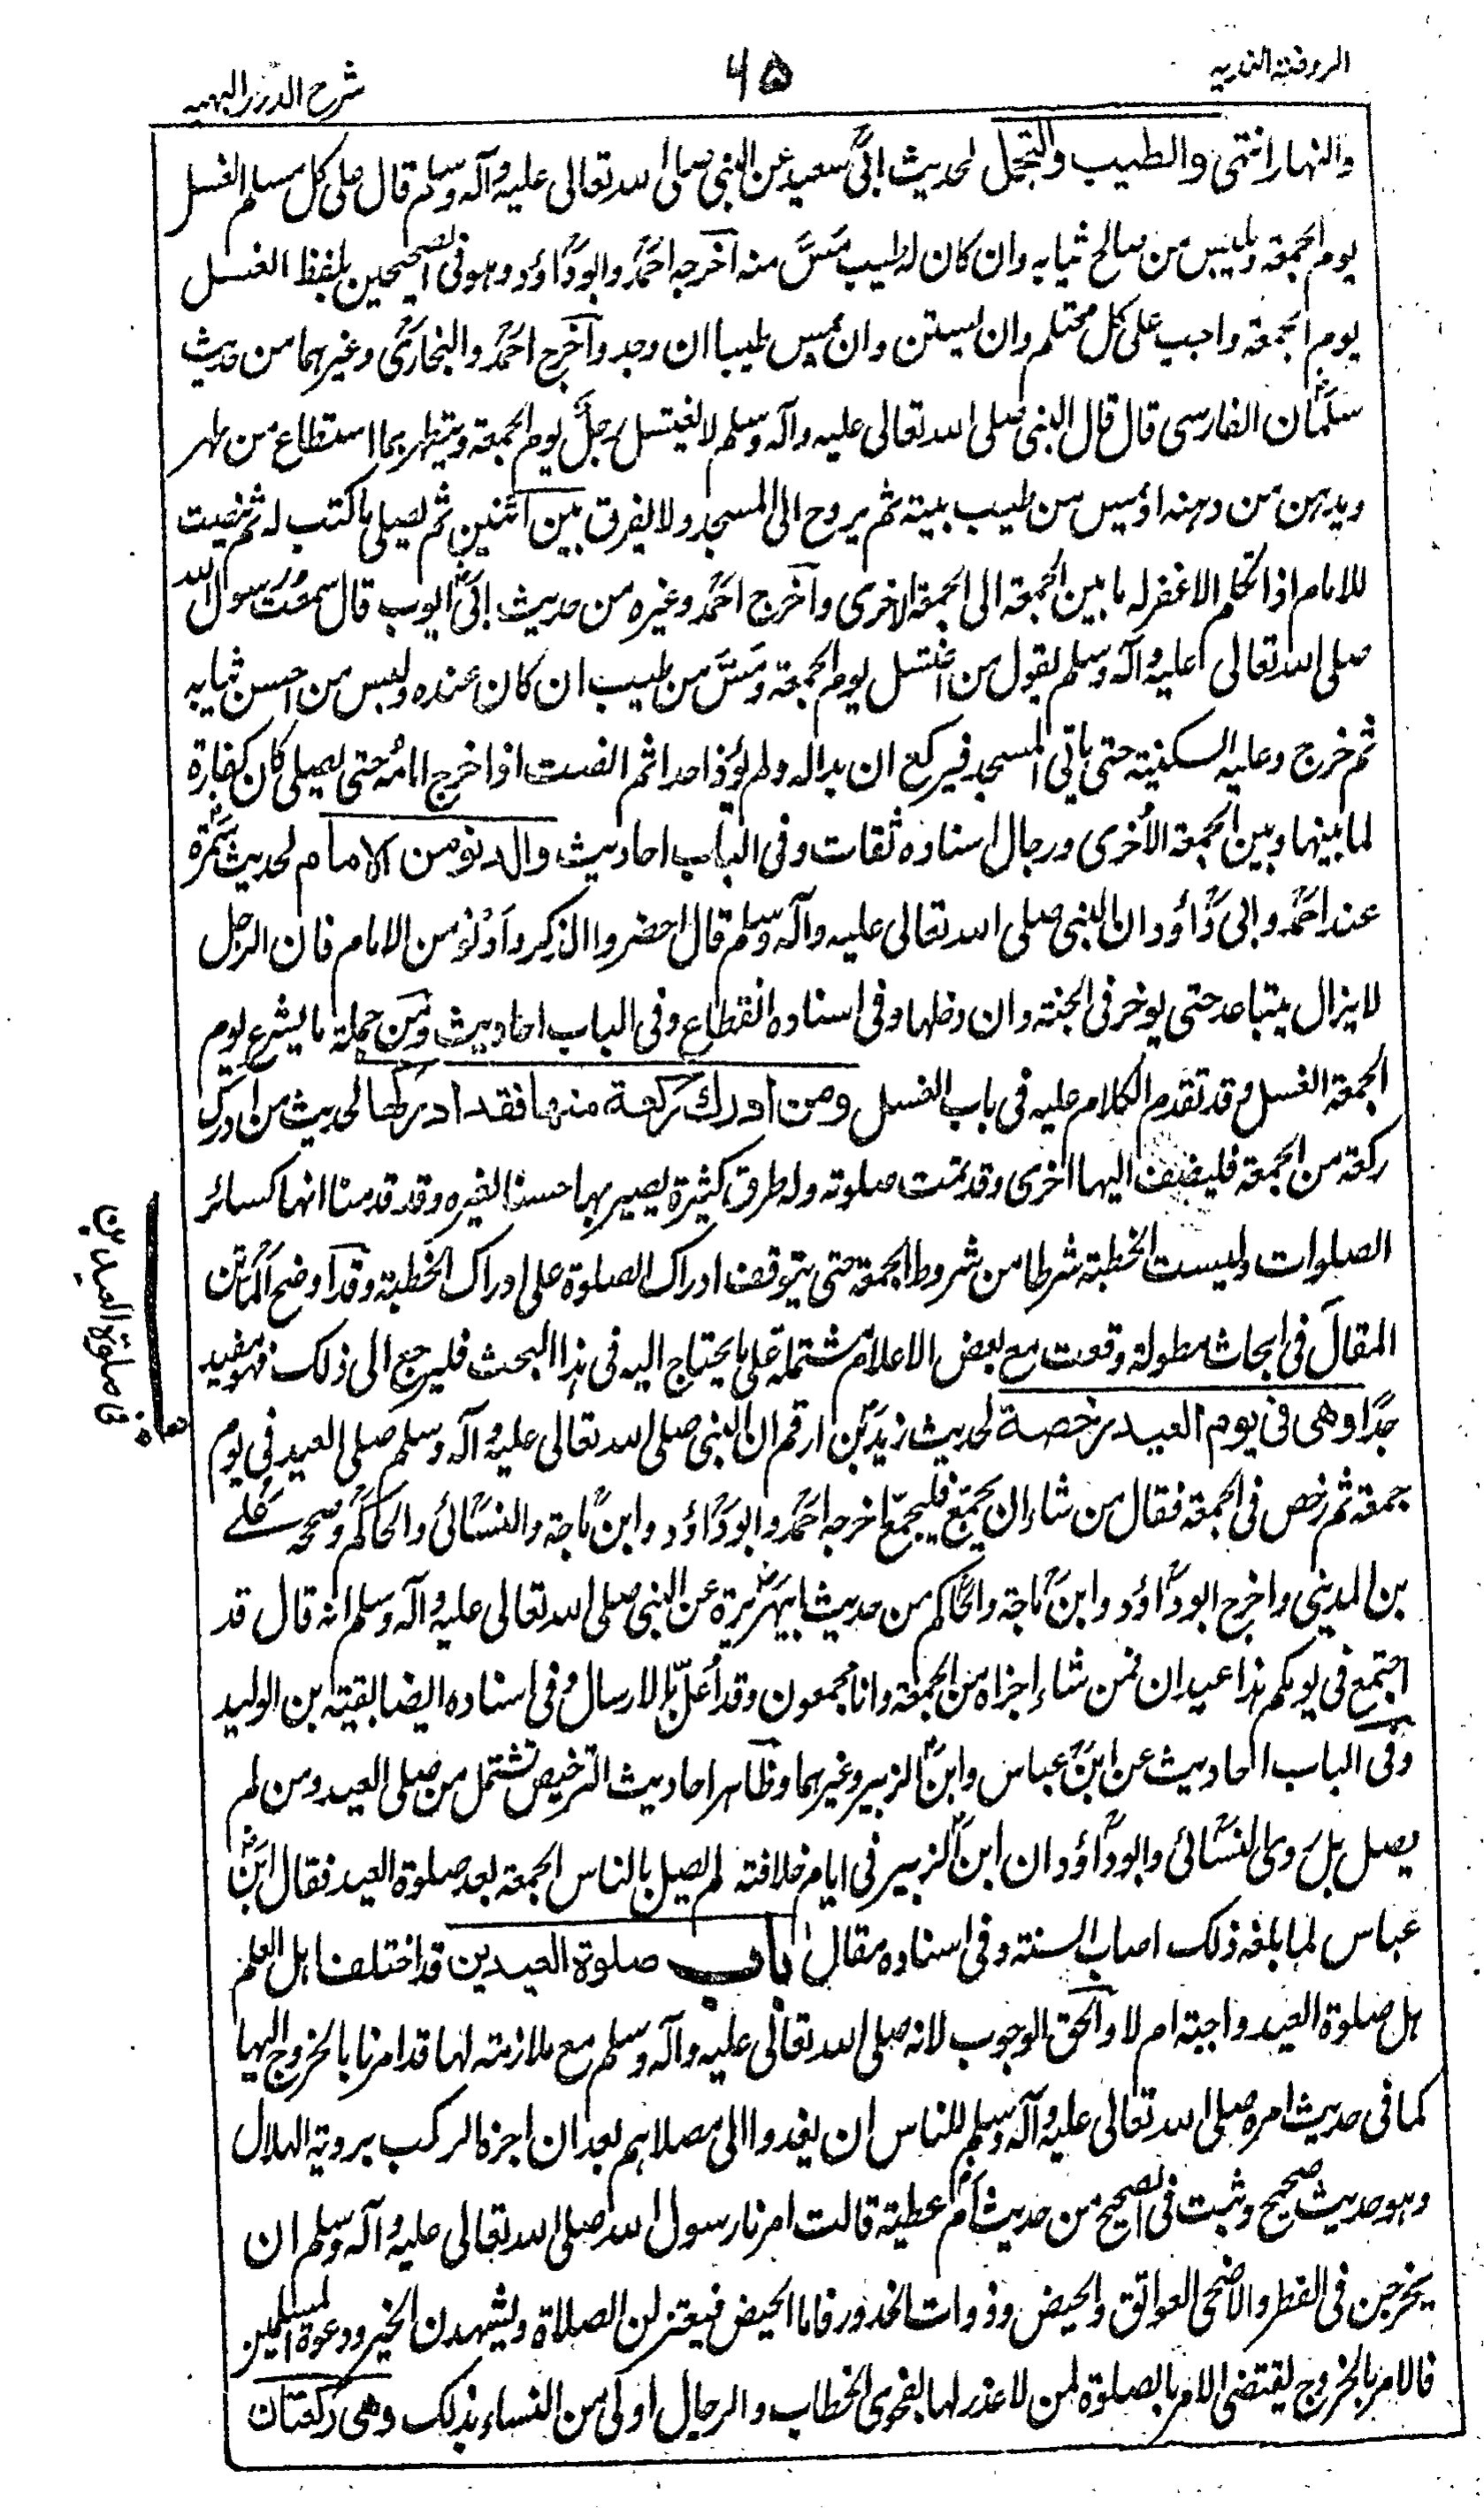 الروضة الندیه
٦٥
شرح الدرر البهیه
والنهار انتهی والطیب والتجمل لحدیث ابی سعید عن النبی صلی الله تعالی علیه وآله وسلم قال علی کل مسلم الغسل
یوم الجمعة ویلبس من صالح ثیابه وان کان له طیب مس منه اخرجه احمد وابو داؤد وهو فی الصحیحین بلفظ الغسل
یوم الجمعة واجب علی کل محتلم وان یستن وان یمس طیبا ان وجد واخرج احمد والبخاری وغیرهما من حدیث
سلمان الفارسی قال قال النبی صلی الله تعالی علیه وآله وسلم لا یغتسل رجل یوم الجمعة ویتطهر بما استطاع من طهر
ویدهن من دهنه او یمس من طیب بیته ثم یروح الی المسجد ولا یفرق بین اثنین ثم یصلی ما کتب له ثم ینصت
للامام اذا تکلم الا غفر له ما بین الجمعة الی الجمعة الاخری واخرج احمد وغیره من حدیث ابی ایوب قال سمعت رسول الله
صلی الله تعالی علیه وآله وسلم یقول من اغتسل یوم الجمعة ومس من طیب ان کان عنده ولبس من احسن ثیابه
ثم خرج وعلیه السکینة حتی یاتی المسجد فیرکع ان بدا له ولم یؤذ احدا ثم انصت اذا خرج امامه حتی یصلی کان کفارة
لما بینها وبین الجمعة الاخری ورجال اسناده ثقات وفی الباب احادیث والدنو من الامام لحدیث سمرة
عند احمد وابی داؤد ان النبی صلی الله تعالی علیه وآله وسلم قال احضروا الذکر وادنوا من الامام فان الرجل
لا یزال یتباعد حتی یوخر فی الجنة وان دخلها وفی اسناده انقطاع وفی الباب احادیث ومن جملة ما یشرع یوم
الجمعة الغسل وقد تقدم الکلام علیه فی باب الغسل ومن ادرك رکعة منها فقد ادرکها لحدیث من ادرک
رکعة من الجمعة فلیضف الیها اخری وقد تمت صلوته وله طرق کثیرة یصیر بها حسنا لغیره وقد قدمنا انها کسائر
الصلوات ولیست الخطبة شرطا من شروط الجمعة حتی یتوقف ادراک الصلوة علی ادراک الخطبة وقد اوضح الماتن
المقال فی ابحاث مطولة وقعت مع بعض الاعلام مشتملة علی ما یحتاج الیه فی هذا البحث فلیرجع الی ذلک فهو مفید
جدا وهی فی یوم العید رخصة لحدیث زید بن ارقم ان النبی صلی الله تعالی علیه وآله وسلم صلی العید فی یوم
جمعة ثم رخص فی الجمعة فقال من شاء ان یجمع فلیجمع اخرجه احمد وابو داؤد وابن ماجة والنسائی والحاکم وصححه علے
بن المدینی واخرج ابو داؤد وابن ماجة والحاکم من حدیث ابی هریرة عن النبی صلی الله تعالی علیه وآله وسلم انه قال قد
اجتمع فی یومکم هذا عیدان فمن شاء اجزاه من الجمعة وانا مجمعون وقد اعل بالارسال وفی اسناده ایضا بقیة بن الولید
وفی الباب احادیث عن ابن عباس وابن الزبیر وغیرهما وظاهر احادیث الترخیص تشتمل من صلی العید ومن لم
یصل بل روی النسائی وابو داؤد ان ابن الزبیر فی ایام خلافته لم یصل بالناس الجمعة بعد صلوة العید فقال ابن
عباس لما بلغه ذلک اصاب السنة وفی اسناده مقال باب صلوة العیدین قد اختلف اهل العلم
هل صلوة العید واجبة ام لا والحق الوجوب لانه صلی الله تعالی علیه وآله وسلم مع ملازمته لها قد امرنا بالخروج الیها
کما فی حدیث امره صلی الله تعالی علیه وآله وسلم للناس ان یغدوا الی مصلاهم بعد ان اخبره الرکب برویة الهلال
وهو حدیث صحیح وثبت فی الصحیح من حدیث ام عطیة قالت امرنا رسول الله صلی الله تعالی علیه وآله وسلم ان
یخرجن فی الفطر والاضحی العواتق والحیض وذوات الخدور فاما الحیض فیعتزلن الصلاة ویشهدن الخیر ودعوة المسلمین
فالامر بالخروج یقتضی الامر بالصلوة لمن لا عذر لها بفحوی الخطاب والرجال اولی من النساء بذلک وهی رکعتان
صلوة العیدین